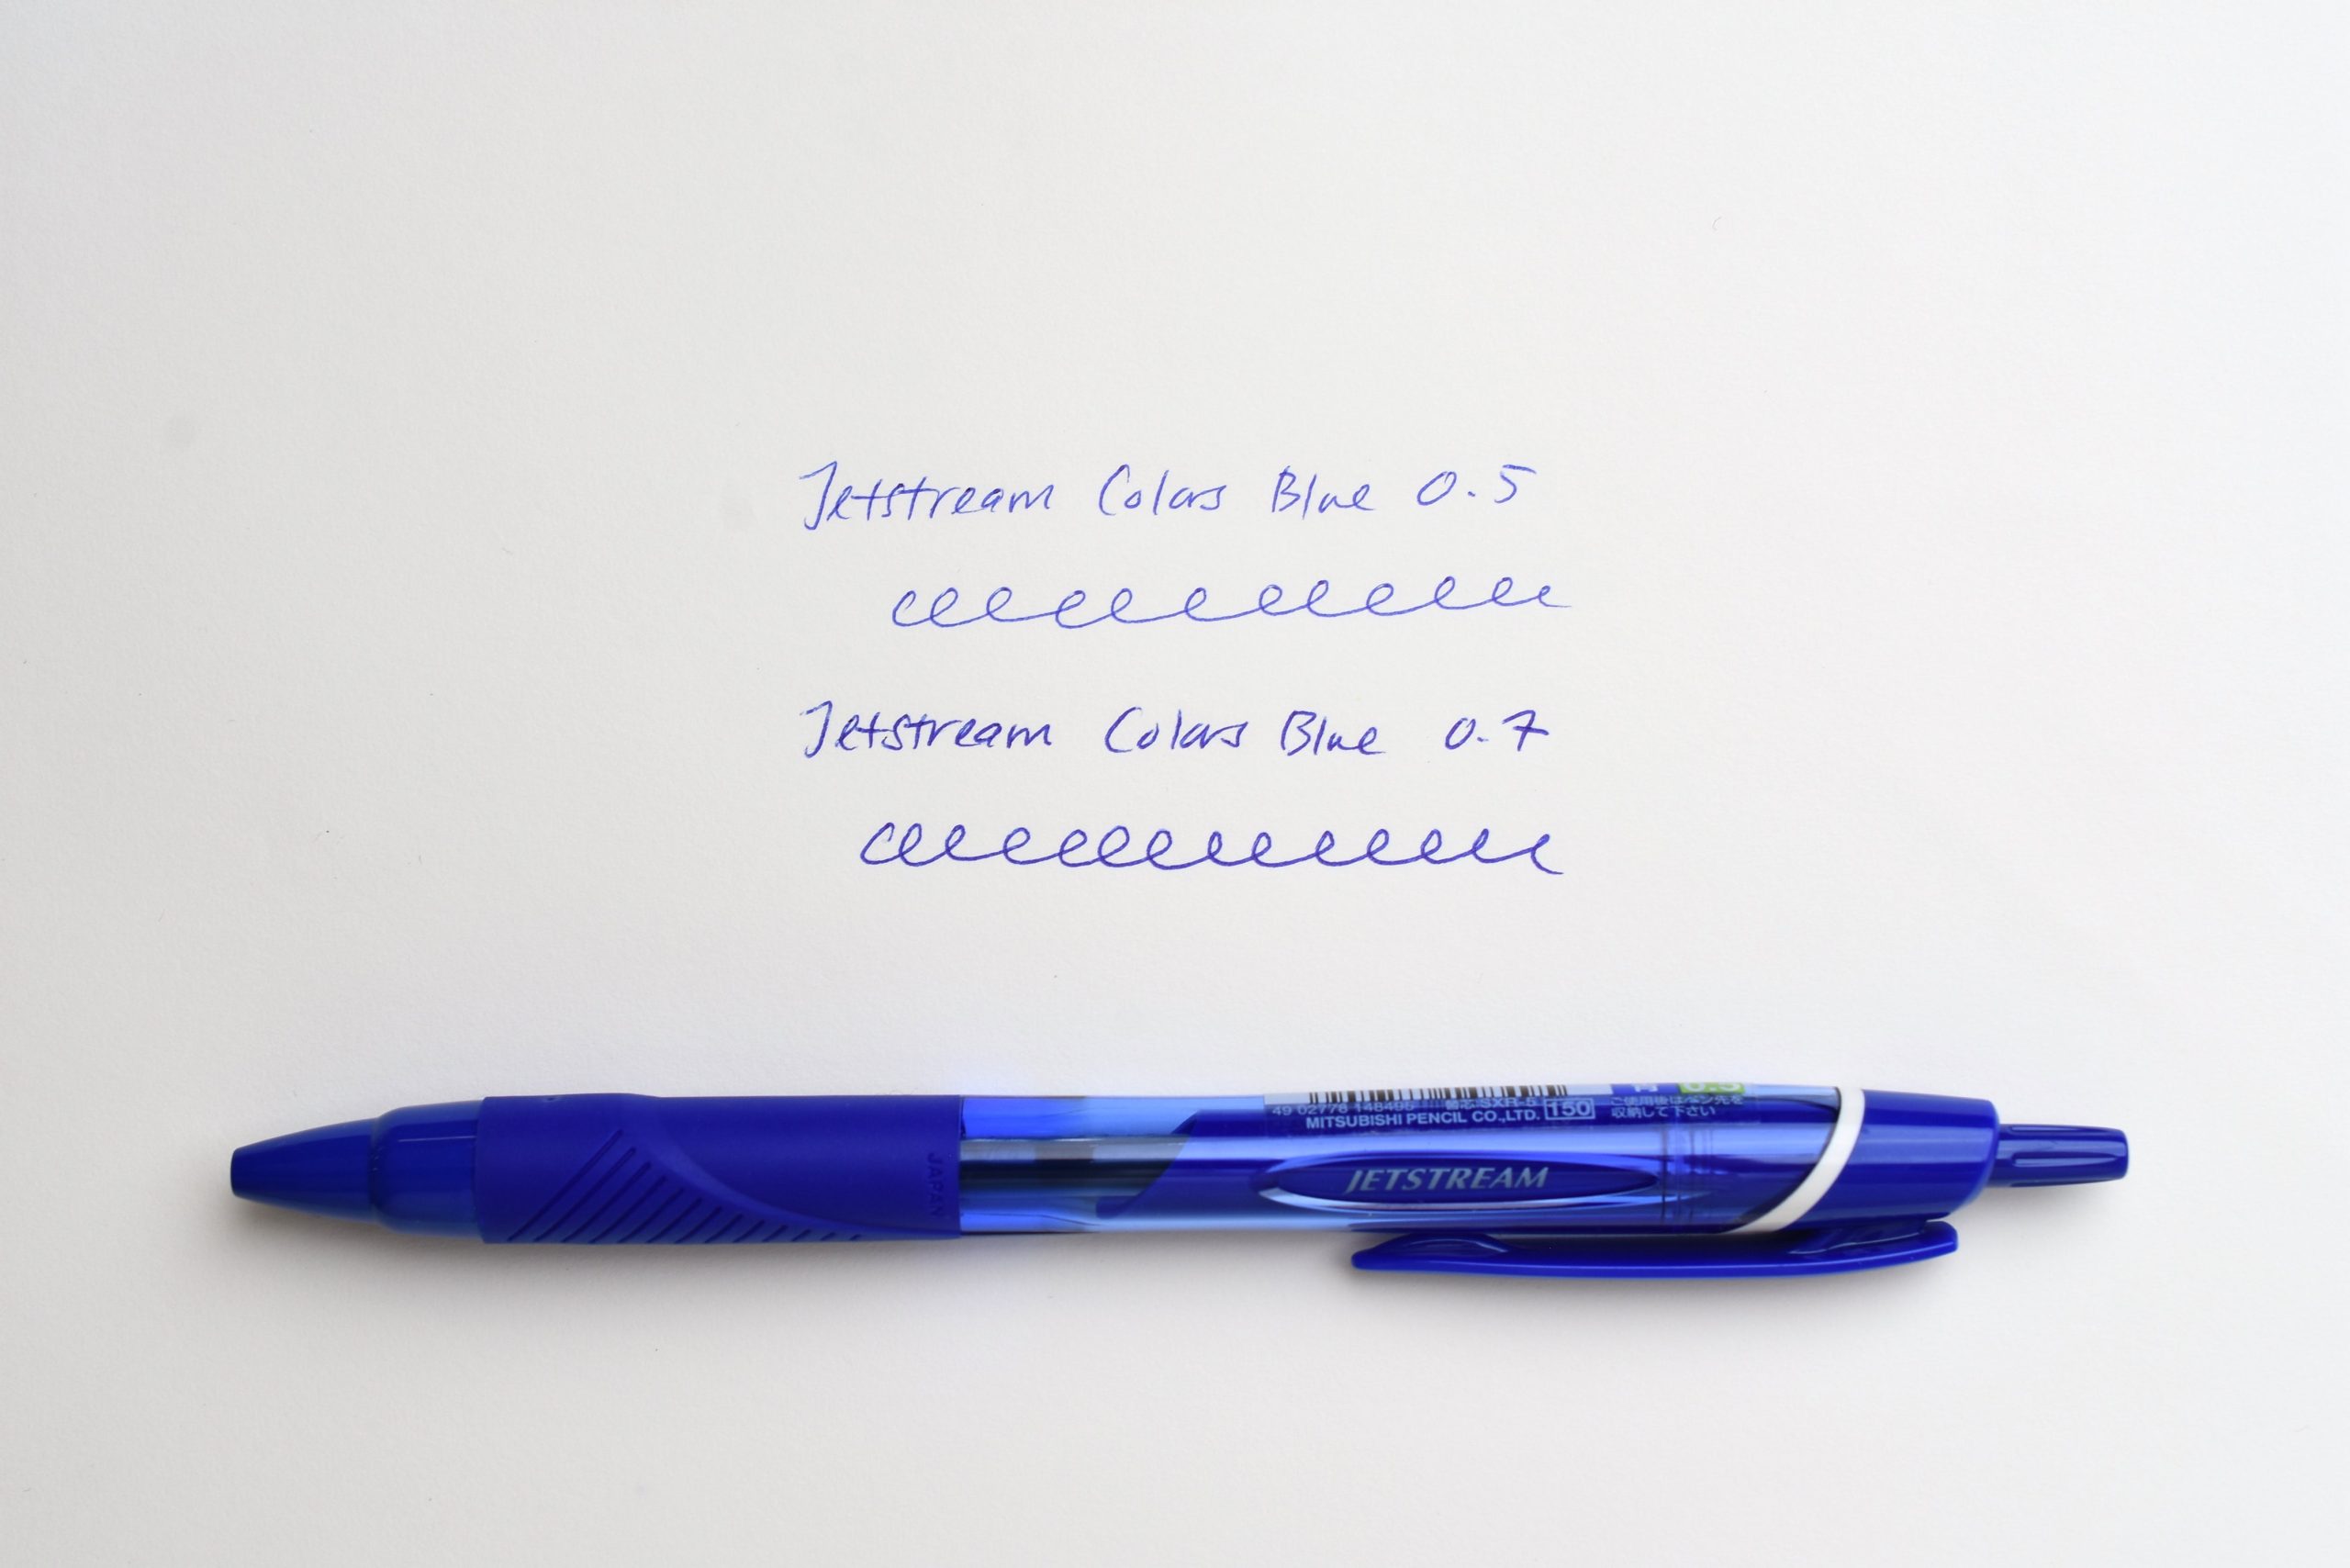 Jetstream Colors Blue 0.5
Jetstream Colors Blue 0.7
0.5
49 02778 148495 替芯SXR-5
MITSUBISHI PENCIL CO.,LTD. 150
ご使用後はペン先を
収納して下さい
JETSTREAM
JAPAN